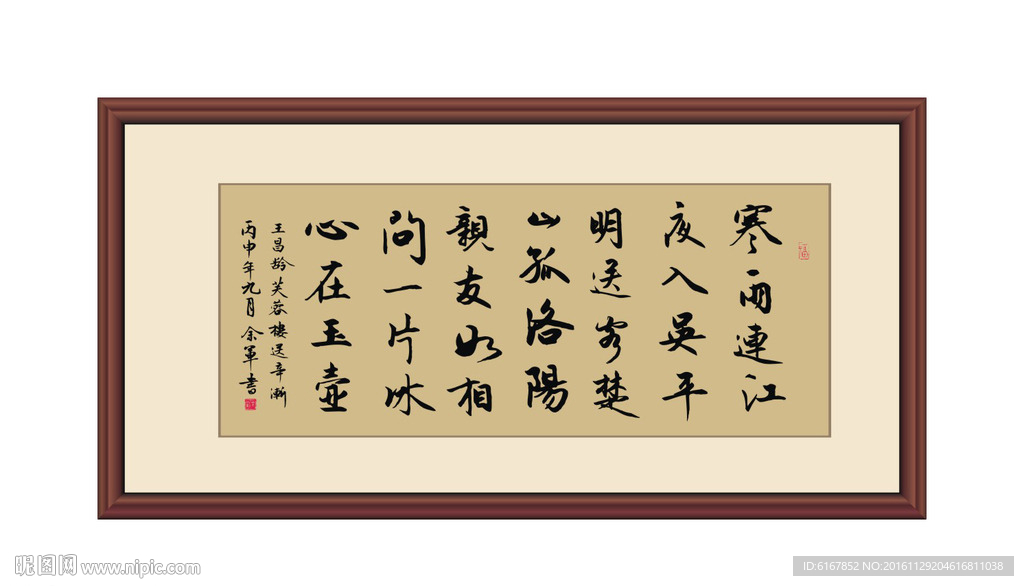 寒雨連江
夜入吳平
明送客楚
山孤洛陽
親友如相
問一片冰
心在玉壺
王昌齡芙蓉樓送辛漸
丙申年九月余軍書
昵图网 www.nipic.com
ID:6167852 NO:20161129204616811038